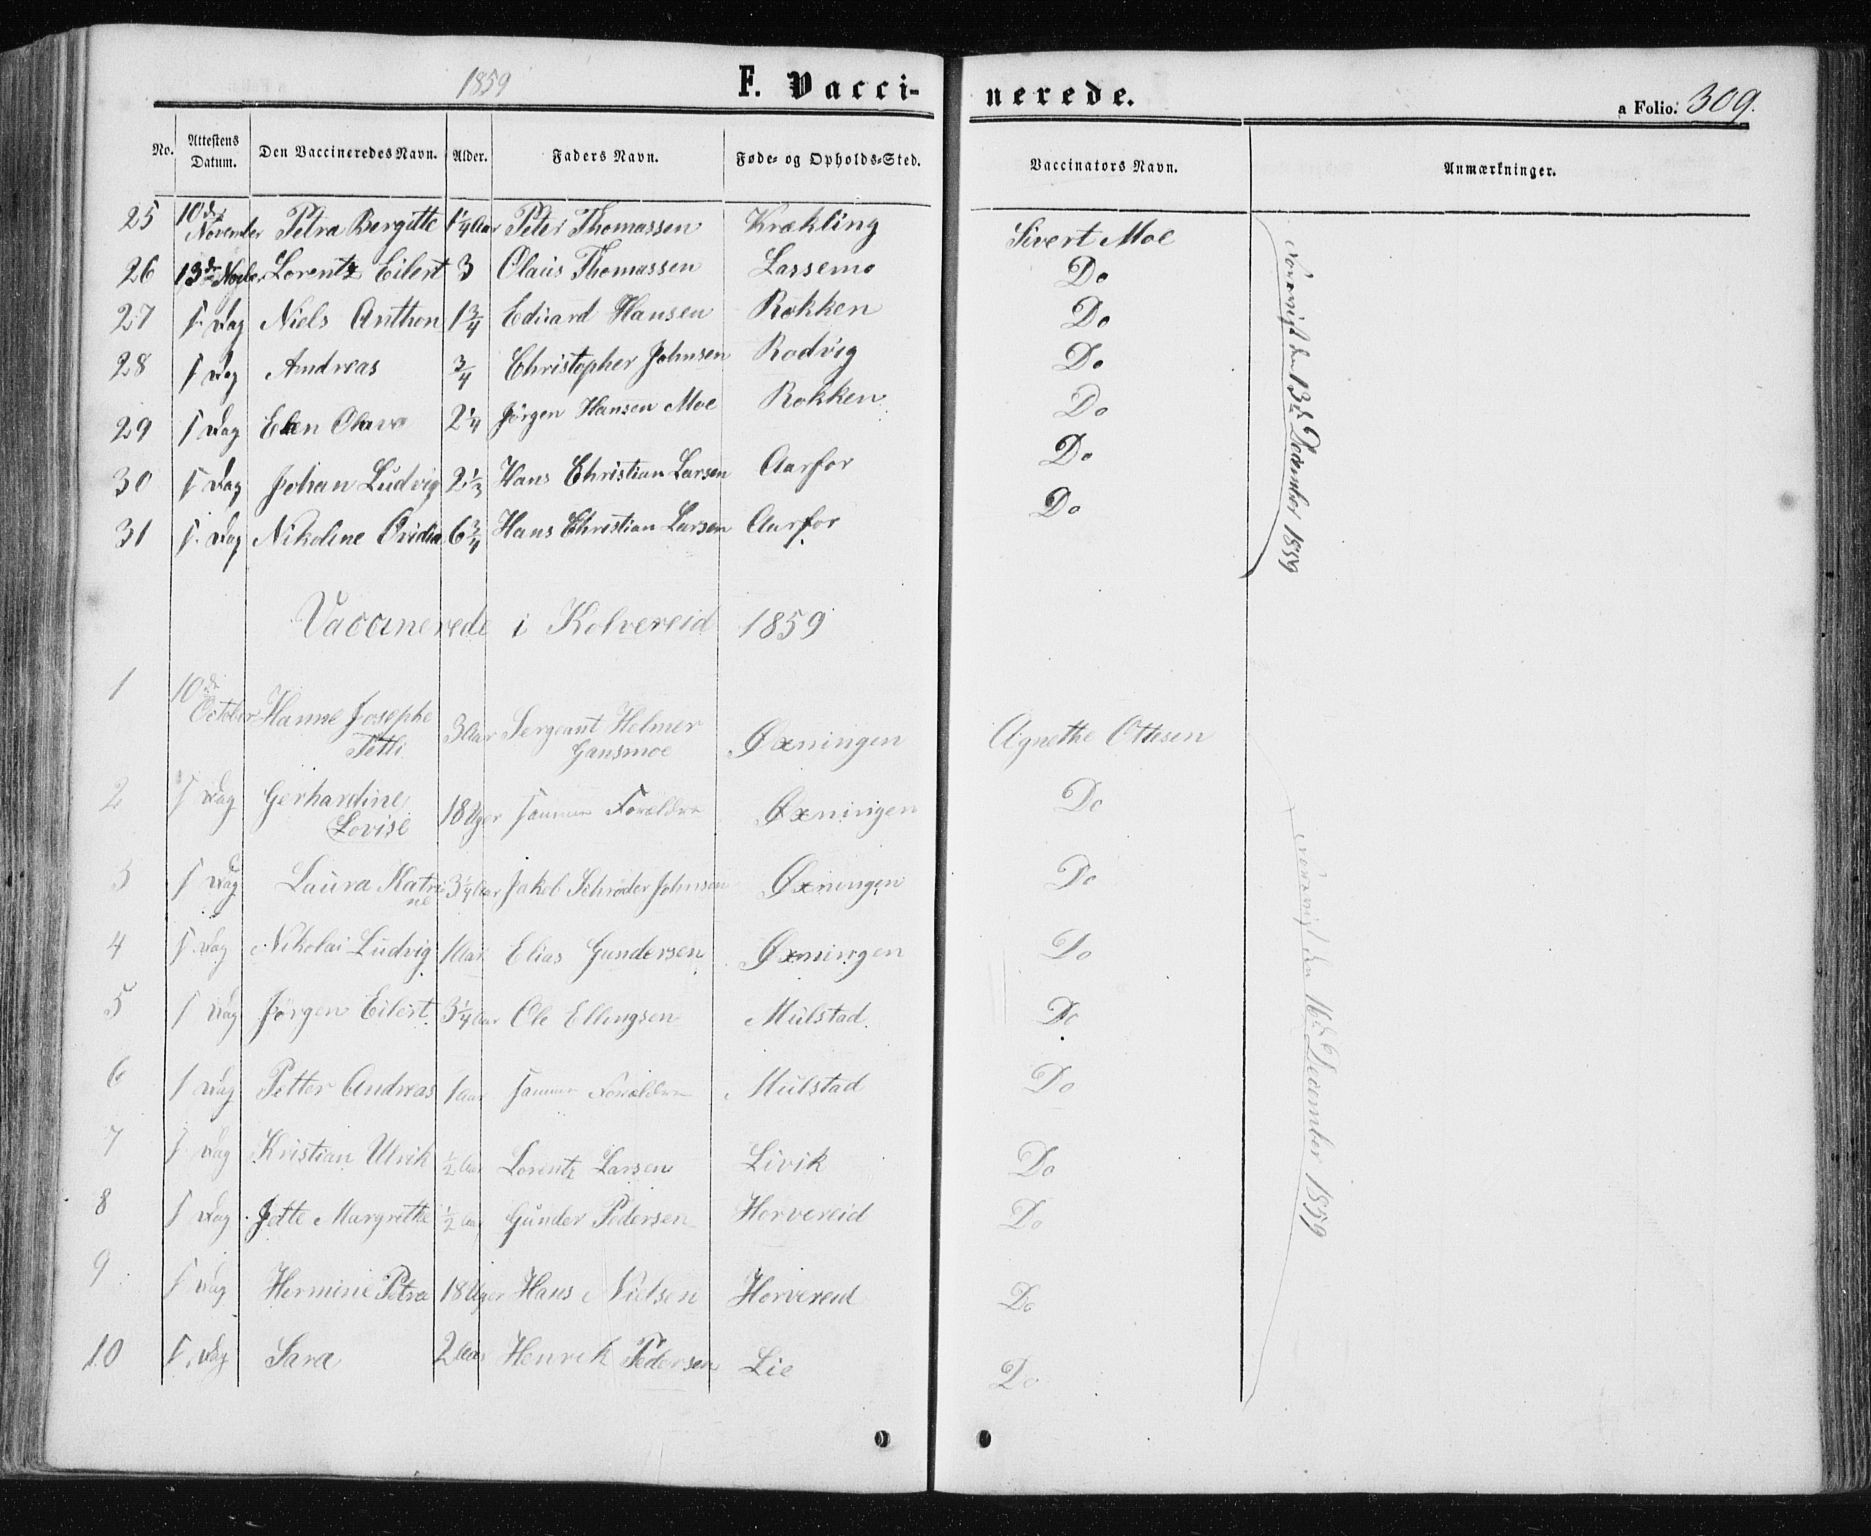 1859
F. Vacci-
nerede.
a Folio. 309.
No. Attestens Datum. Den Vaccineredes Navn. Alder. Faders Navn. Føde- og Opholds-Sted. Vaccinators Navn. Anmærkninger.
25 10de November Petra Bergitte 1¼ Aar Peter Thomassen Krækling Sivert Moe
26 13de Novber Lorentz Eilert 3 Olaus Thomassen Lassemo Do
27 s. Dag Niels Anthon 1¾ Eduard Hansen Rokken Do
28 s. Dag Andreas ¾ Christopher Johnsen Rodvig Do
29 s. Dag Elen Olava 2¼ Jörgen Hansen Moe Rokken Do
30 s. Dag Johan Ludvig 2⅓ Hans Christian Larsen Aarfor Do
31 s. Dag Nikoline Ovidia 6¾ Hans Christian Larsen Aarfor Do
den 13de December 1859
Vaccinerede i Kolvereid 1859
1 10de October Hanne Josephe 3 Aar Sergeant Helmer Gansmoe Øxningen Agnethe Ottesen
2 s. Dag Gerhardine Lovise 18 Uger samme Forældre Øxningen Do
3 s. Dag Laura Katrine 3¼ Aar Jakob Schrøder Johnsen Øxningen Do
4 s. Dag Nikolai Ludvig 1 Aar Elias Gundersen Øxningen Do
5 s. Dag Jørgen Eilert 3¼ Aar Ole Ellingsen Mulstad Do
6 s. Dag Petter Andreas 1 aar samme Forældre Mulstad Do
7 s. Dag Kristian Ulrik ½ Aar Lorentz Larsen Livik Do
8 s. Dag Jette Margrethe ½ Aar Gunder Pedersen Horvereid Do
9 s. Dag Hermine Petra 18 Uger Hans Nielsen Horvereid Do
10 s. Dag Sara 2 Aar Henrik Pedersen Lie Do
den 16de December 1859